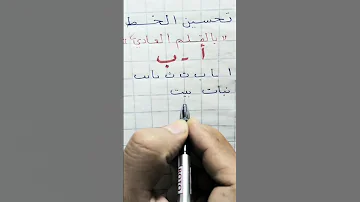 تحسين الخط
"بالقلم العادي"
أ - ب
ا با ب ت ث نابت
نبات بيت